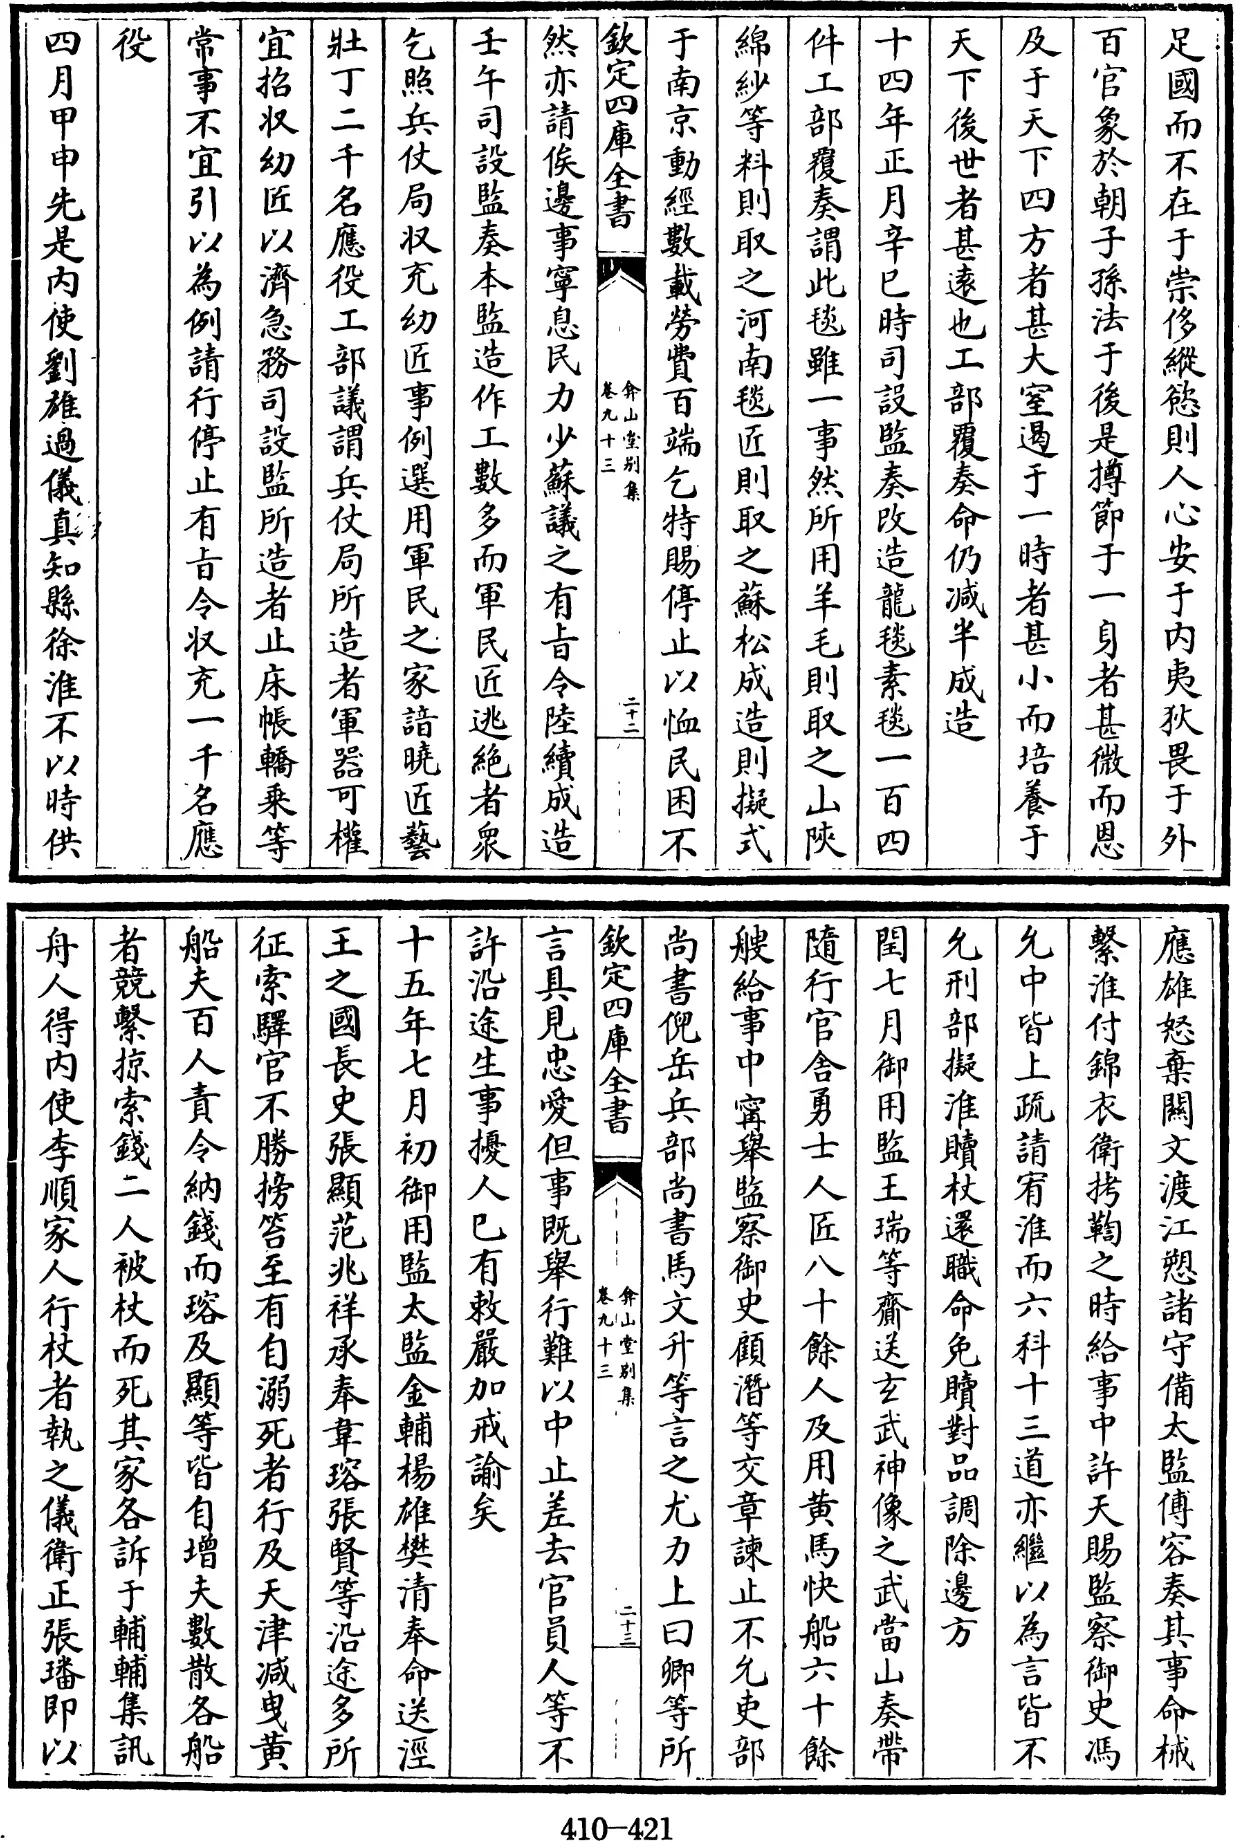 足國而不在于崇侈縱慾則人心安于内夷狄畏于外
百官象於朝子孫法于後是撙節于一身者甚微而恩
及于天下四方者甚大室遏于一時者甚小而培養于
天下後世者甚遠也工部覆奏命仍减半成造
十四年正月辛巳時司設監奏改造龍毯素毯一百四
件工部覆奏謂此毯雖一事然所用羊毛則取之山陜
綿紗等料則取之河南毯匠則取之蘇松成造則擬式
于南京動經數載勞費百端乞特賜停止以恤民困不
欽定四庫全書
弇山堂别集
卷九十三
二十二
然亦請俟邊事寧息民力少蘇議之有㫖令陸續成造
壬午司設監奏本監造作工數多而軍民匠逃絶者衆
乞照兵仗局収充幼匠事例選用軍民之家諳曉匠藝
壯丁二千名應役工部議謂兵仗局所造者軍器可權
宜招収幼匠以濟急務司設監所造者止床帳轎乗等
常事不宜引以為例請行停止有㫖令収充一千名應
役
四月甲申先是内使劉雄過儀真知縣徐淮不以時供
應雄怒棄關文渡江愬諸守備太監傅容奏其事命械
繫淮付錦衣衛拷鞫之時給事中許天賜監察御史馮
允中皆上疏請宥淮而六科十三道亦繼以為言皆不
允刑部擬淮贖杖還職命免贖對品調除邊方
閏七月御用監王瑞等齎送玄武神像之武當山奏帶
隨行官舍勇士人匠八十餘人及用黄馬快船六十餘
艘給事中甯舉監察御史顧潛等交章諫止不允吏部
尚書倪岳兵部尚書馬文升等言之尤力上曰卿等所
欽定四庫全書
弇山堂别集
卷九十三
二十三
言具見忠愛但事既舉行難以中止差去官員人等不
許沿途生事擾人已有敕嚴加戒諭矣
十五年七月初御用監太監金輔楊雄樊清奉命送涇
王之國長史張顯范兆祥承奉韋瑢張賢等沿途多所
征索驛官不勝搒笞至有自溺死者行及天津减曳黄
船夫百人責令納錢而瑢及顯等皆自增夫數散各船
者競繫掠索錢二人被杖而死其家各訴于輔輔集訊
舟人得内使李順家人行杖者執之儀衛正張璠即以
410-421